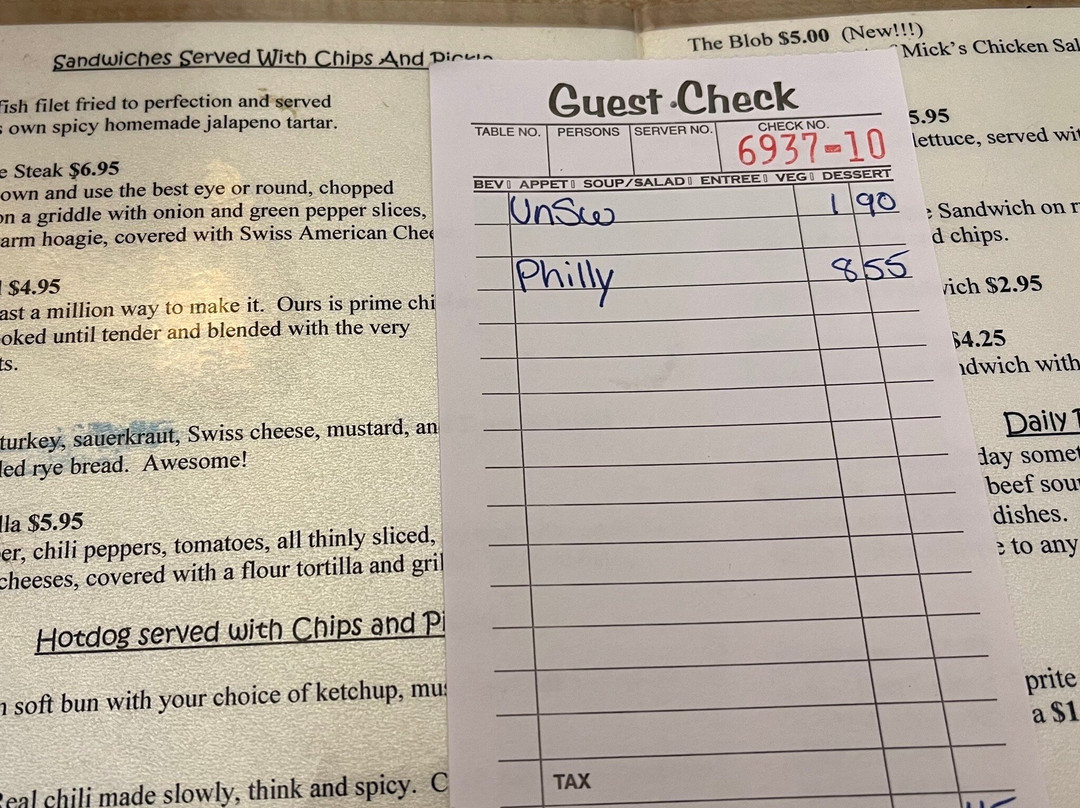 Sandwiches Served With Chips And Pickle
fish filet fried to perfection and served
own spicy homemade jalapeno tartar.
e Steak $6.95
own and use the best eye or round, chopped
on a griddle with onion and green pepper slices,
arm hoagie, covered with Swiss American Chee
$4.95
ast a million way to make it. Ours is prime chi
ooked until tender and blended with the very
ts.
turkey, sauerkraut, Swiss cheese, mustard, an
led rye bread. Awesome!
lla $5.95
er, chili peppers, tomatoes, all thinly sliced,
cheeses, covered with a flour tortilla and gril
Hotdog served with Chips and Pi
n soft bun with your choice of ketchup, mus
Real chili made slowly, think and spicy. C
Guest Check
TABLE NO. PERSONS SERVER NO. CHECK NO.
6937-10
BEV APPET SOUP/SALAD ENTREE VEG DESSERT
UnSw 1 90
Philly 8 55
TAX
The Blob $5.00 (New!!!)
Mick's Chicken Sal
5.95
lettuce, served wit
e Sandwich on r
d chips.
wich $2.95
$4.25
ndwich with
Daily
day somet
beef sou
dishes.
e to any
prite
a $1